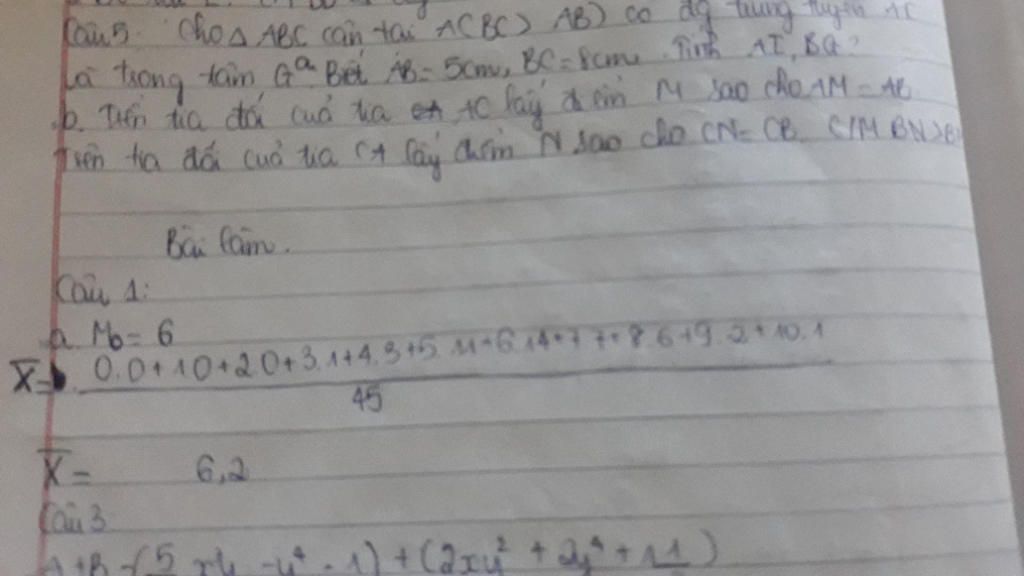 Câu 5: Cho △ ABC cân tại A (BC > AB) có đg trung tuyến AI
Là trọng tâm G a Biết AB = 5cm, BC = 8cm. Tính AI, BG?
b. Trên tia đối của tia AC lấy điểm M sao cho AM = AB
Trên tia đối của tia CA lấy điểm N sao cho CN = CB. C/M BN > B
Bài làm.
Câu 1:
a M₀ = 6
X̄ = 0.0+1.0+2.0+3.1+4.3+5.11+6.14+7.7+8.6+9.2+10.1
45
X̄ = 6,2
Câu 3
A+B = (5 xy - y⁴ - 1) + (2xy² + 2y⁴ + 11)